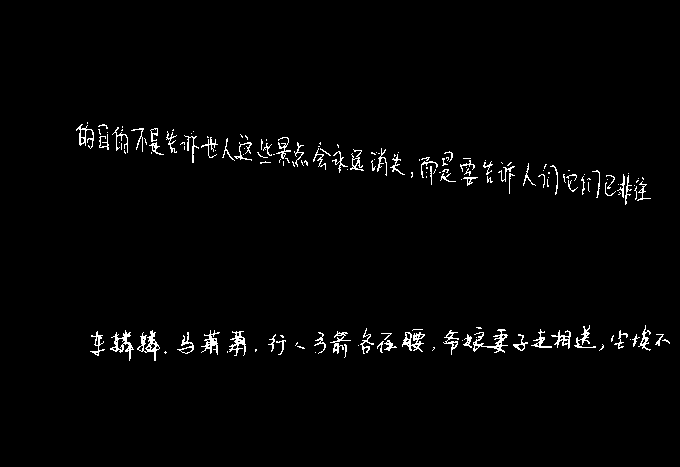 的目的不是告诉世人这些景点会永远消失,而是要告诉人们它们已非往
车辚辚,马萧萧,行人弓箭各在腰,爷娘妻子走相送,尘埃不